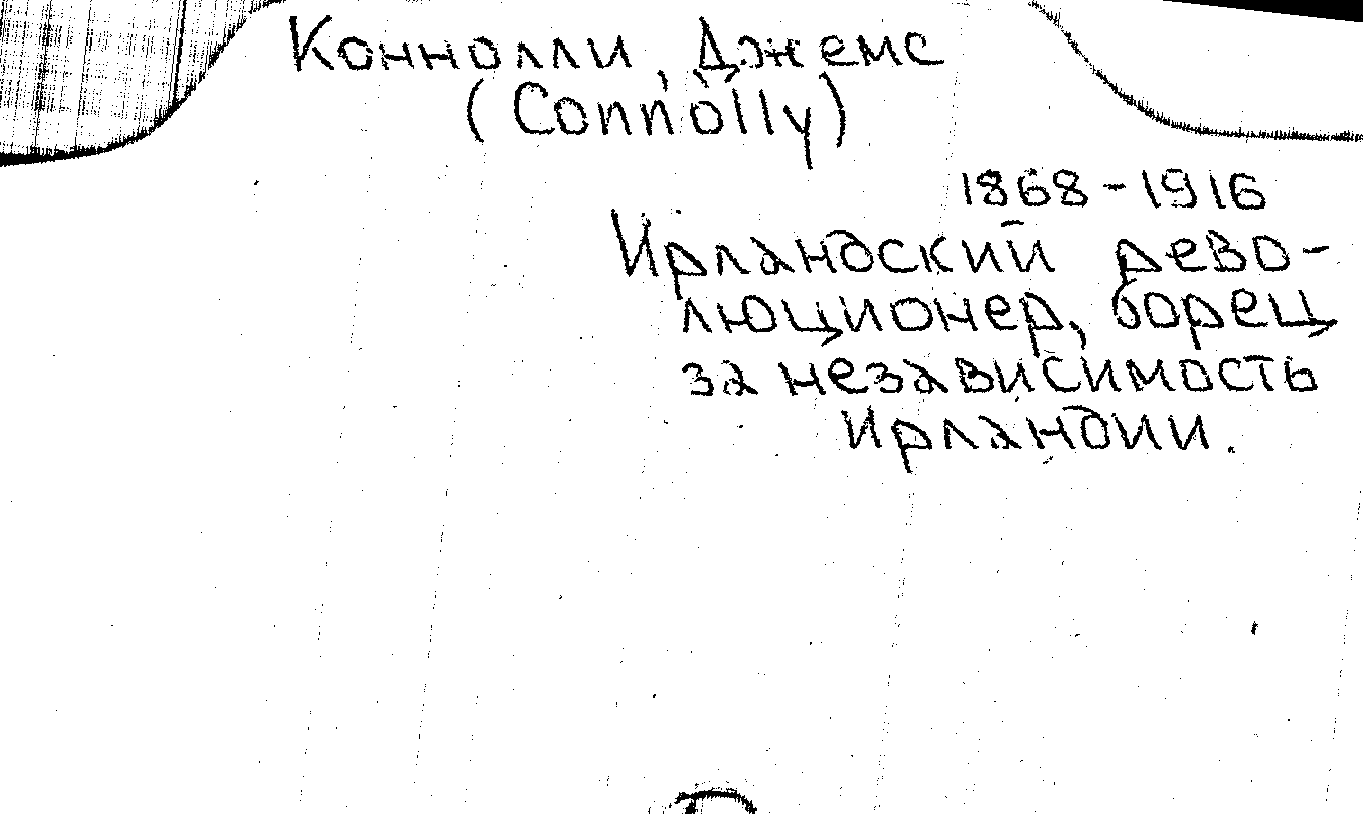 Коннолли, Джемс
(Connolly)
1868-1916
Ирландский рево-
люционер, борец
за независимость
Ирландии.